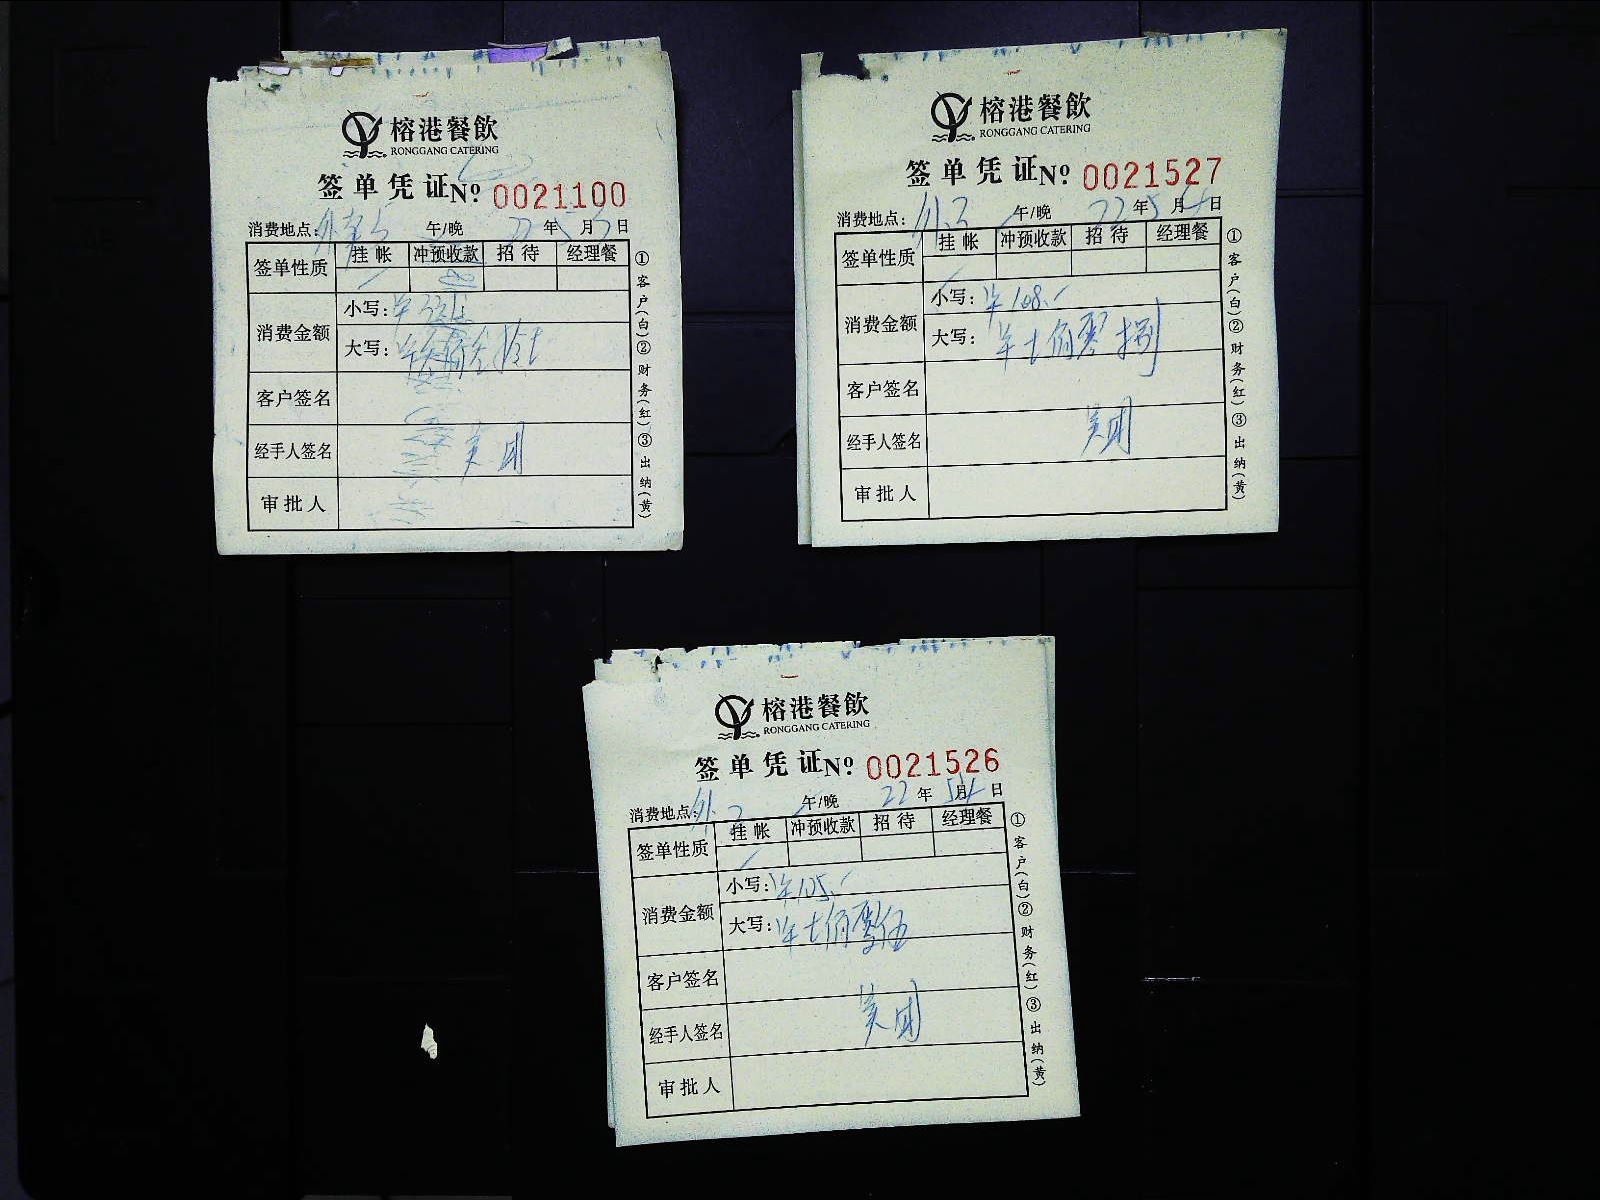 榕港餐飲
RONGGANG CATERING
签单凭证 No 0021100
消费地点: 午/晚 22年5月 日
签单性质 挂帐 冲预收款 招待 经理餐
消费金额 小写:
大写:
客户签名
经手人签名 美团
审批人
①客户(白)②财务(红)③出纳(黄)
榕港餐飲
RONGGANG CATERING
签单凭证 No 0021527
消费地点: 外 午/晚 22年5月 日
签单性质 挂帐 冲预收款 招待 经理餐
消费金额 小写: 108.
大写: 佰零捌
客户签名
经手人签名 美团
审批人
①客户(白)②财务(红)③出纳(黄)
榕港餐飲
RONGGANG CATERING
签单凭证 No 0021526
消费地点: 外 午/晚 22年5月 日
签单性质 挂帐 冲预收款 招待 经理餐
消费金额 小写: 105.
大写: 佰零伍
客户签名
经手人签名 美团
审批人
①客户(白)②财务(红)③出纳(黄)